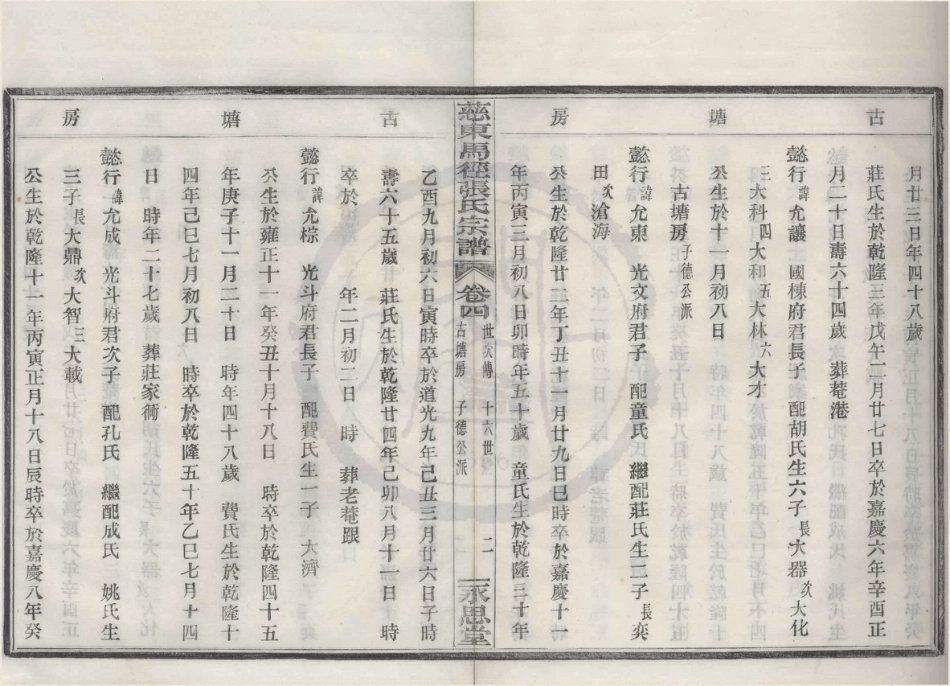 古　塘　房
月廿三日年四十八歲
莊氏生於乾隆三年戊午二月廿七日卒於嘉慶六年辛酉正
月二十日壽六十四歲　葬菴港
懿行諱允讓　國棟府君長子　配胡氏生六子長大器次大化
三大科四大和五大林六大才
公生於十一月初八日
古塘房子德公派
懿行諱允東　光文府君子　配童氏　繼配莊氏生二子長奕
田次滄海
公生於乾隆廿二年丁丑十二月廿九日巳時卒於嘉慶十一
年丙寅三月初八日卯時年五十歲　童氏生於乾隆三十年
慈東馬徑張氏宗譜　卷四　世次傳　十六世　古塘房　子德公派　二　永思堂
古　塘　房
乙酉九月初六日寅時卒於道光九年己丑三月廿六日子時
壽六十五歲　莊氏生於乾隆廿四年己卯八月十一日　時
卒於　年二月初二日　時　葬老菴跟
懿行諱允棕　光斗府君長子　配費氏生一子　大濟
公生於雍正十一年癸丑十月十八日　時卒於乾隆四十五
年庚子十一月二十日　時年四十八歲　費氏生於乾隆十
四年己巳七月初八日　時卒於乾隆五十年乙巳七月十四
日　時年二十七歲　葬莊家衕
懿行諱允成　光斗府君次子　配孔氏　繼配成氏　姚氏生
三子長大鼎次大智三大載
公生於乾隆十一年丙寅正月十八日辰時卒於嘉慶八年癸